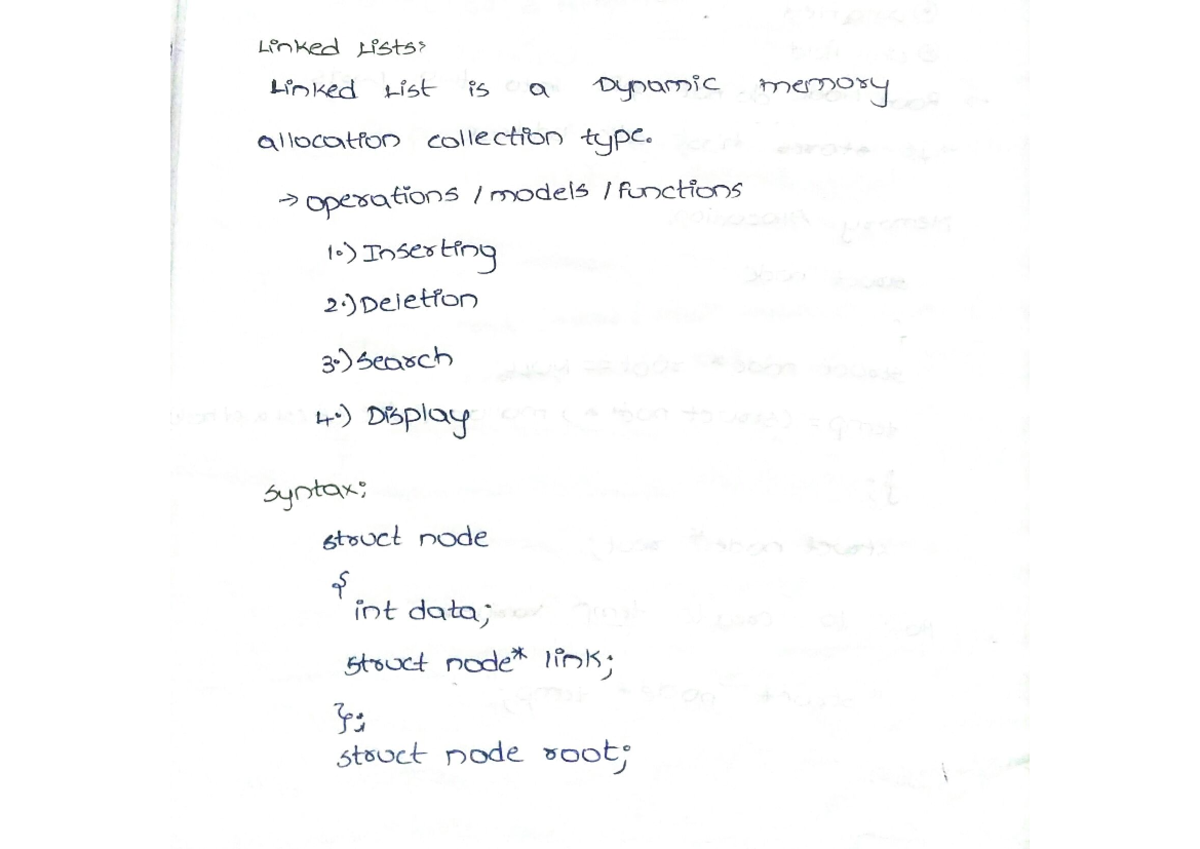 Linked Lists:
Linked List is a Dynamic memory
allocation collection type.
→ operations / models / functions
1.) Inserting
2.) Deletion
3.) Search
4.) Display
Syntax:
struct node
{
int data;
struct node* link;
};
struct node root;